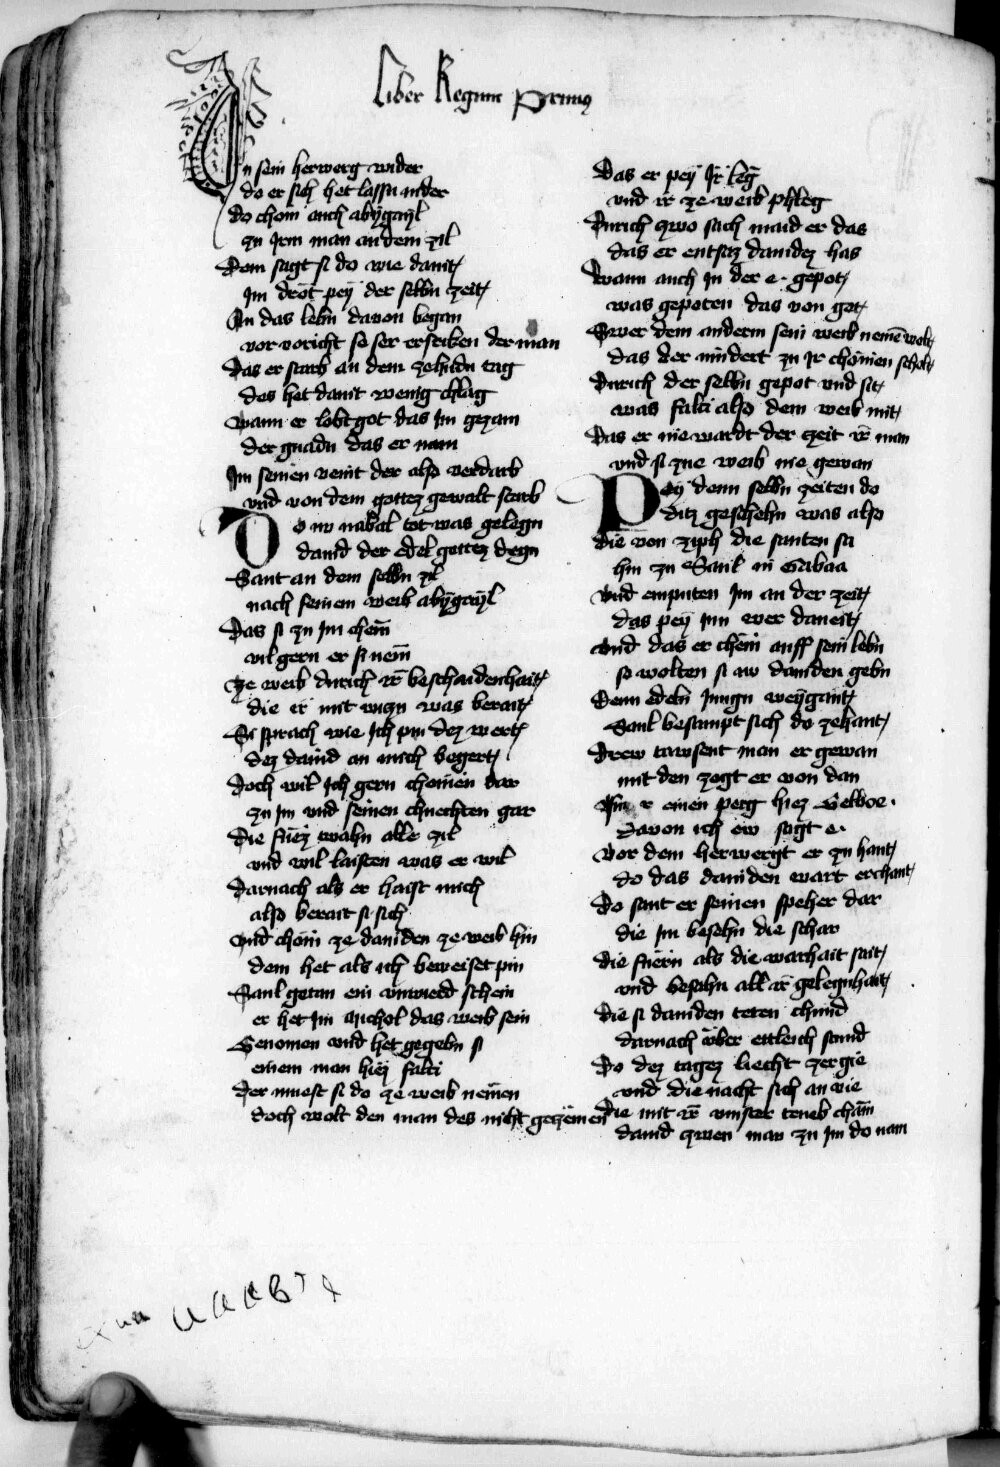 Liber Regum Primus
In sein herwerg wider
do er sich het lassn nider
do chom auch abygayl
zu Irm man an dem zil
Dem sagt si do wie dauit
Im drot pey der selbn zeit
An das lebn dauon began
vor voricht so ser erseiken der man
Das er starb an dem zehndn tag
des het dauit wenig chlag
wann er lobt got das Im gezam
der gnadn das er nam
Im seinen veint der also verdarb
vnd von dem gottez gewalt starb
Do nw nabal tot was gelegn
dauid der edel gottez degn
Sant an dem selbn zil
nach seinem weib abygayl
Das si zu Im chem
vil gern er si nem
Ze weib durich ir beschaidenhait
die ir mit wizn was berait
Si sprach wie Ich pin dez wert
dez dauid an mich begert
Doch wil Ich gern chomen dar
zu Im vnd seinen chnechten gar
Die fuez wahn alle zil
vnd wil laisten was er wil
Darnach als er haist mich
also berait si sich
Vnd chom ze dauiden ze weib hin
dem het als ich beweiset pin
Saul getan ein vnwerd schein
er het Im Michol das weib sein
Genomen vnd het gegebn si
einem man hiez falti
Der muest si do ze weib nemen
doch wolt den man des nicht gezemen
Das er pey Ir leg
vnd ir ze weib phleg
Durich zwo sach maid er das
das er entsaz dauidez has
Wann auch In der e gepot
was gepoten das von got
Swer dem anderm sein weib neme wolt
das der mindert zu Ir chomen scholt
Durich der selbn gepot vnd sit
was falti also dem weib mit
Das er nie wardt der zeit ir man
vnd si zue weib nie gewan
Pey denn selbn zeiten do
ditz geschehn was also
Die von ziph die santen sa
hin zu Saul in Gabaa
Vnd enputen Im an der zeit
das pey Inn wer dauit
Vnd das er chem auff sein lebn
so wolten si Im dauiden gebn
Denn edeln Jungn weygant
Saul besampt sich do zehant
Drew tawsent man er gewan
mit den zogt er von dan
einen perg hiez Gelboe
Dauon ich ew sagt e
Vor dem herwergt er zu hant
do das dauiden wart erchant
Do sant er seinen speher dar
die Im besehn die schar
Die fuern als die warhait sait
vnd besahn all ir gelegnhait
Die si dauiden teten chund
darnach vber ettleich stund
Do dez tagez liecht zergie
vnd die nacht sich an vie
Die mit ir vinster teneb cham
dauid zwen man zu Im do nam